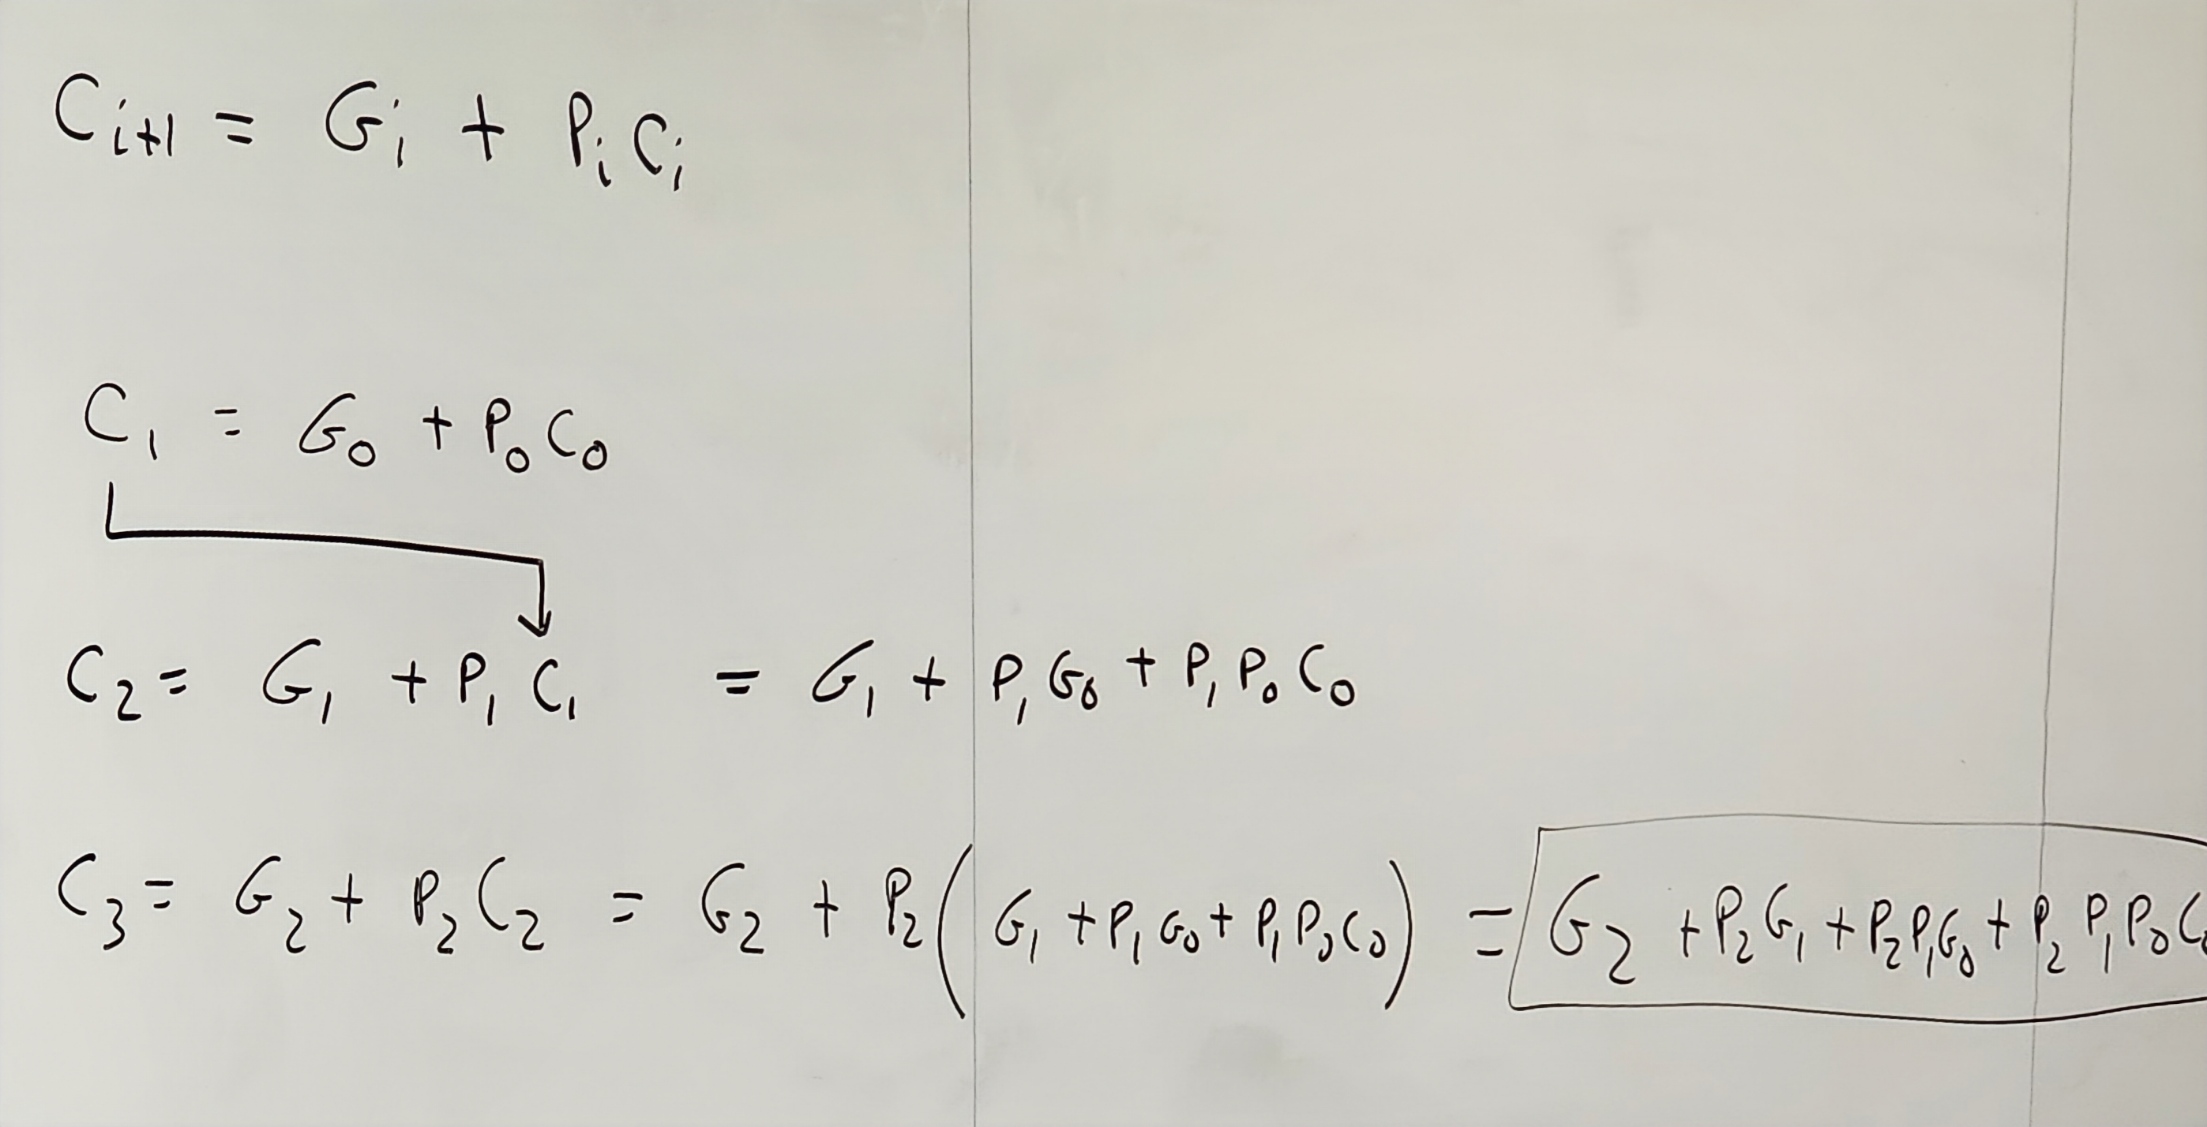 C_{i+1} = G_i + P_i C_i
C_1 = G_0 + P_0 C_0
C_2 = G_1 + P_1 C_1 = G_1 + P_1 G_0 + P_1 P_0 C_0
C_3 = G_2 + P_2 C_2 = G_2 + P_2 ( G_1 + P_1 G_0 + P_1 P_0 C_0 ) = G_2 + P_2 G_1 + P_2 P_1 G_0 + P_2 P_1 P_0 C_0